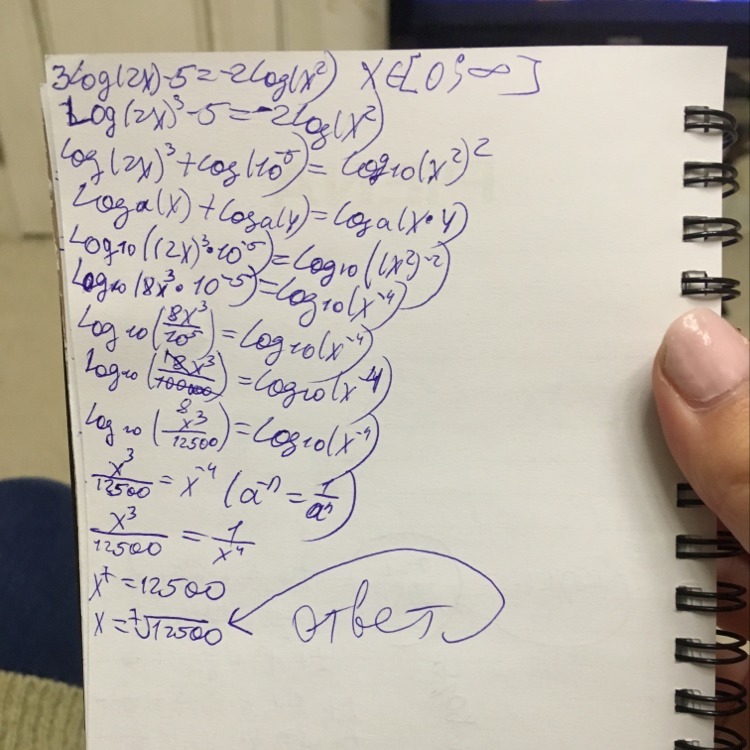 3log(2x)-5=-2log(x²) X∈[0;∞]
Log(2x)³-5=-2log(x²)
Log(2x)³+log(10⁻⁵)=log10(x²)²
Loga(x)+Loga(y)=Loga(x•y)
Log10((2x)³•10⁻⁵)=Log10((x²)⁻²)
Log10(8x³•10⁻⁵)=Log10(x⁻⁴)
Log10(8x³/10⁵)=Log10(x⁻⁴)
Log10(8x³/100000)=Log10(x⁻⁴)
Log10(x³/12500)=Log10(x⁻⁴)
x³/12500=x⁻⁴ (a⁻ⁿ=1/aⁿ)
x³/12500=1/x⁴
x⁷=12500
x=⁷√12500 ответ